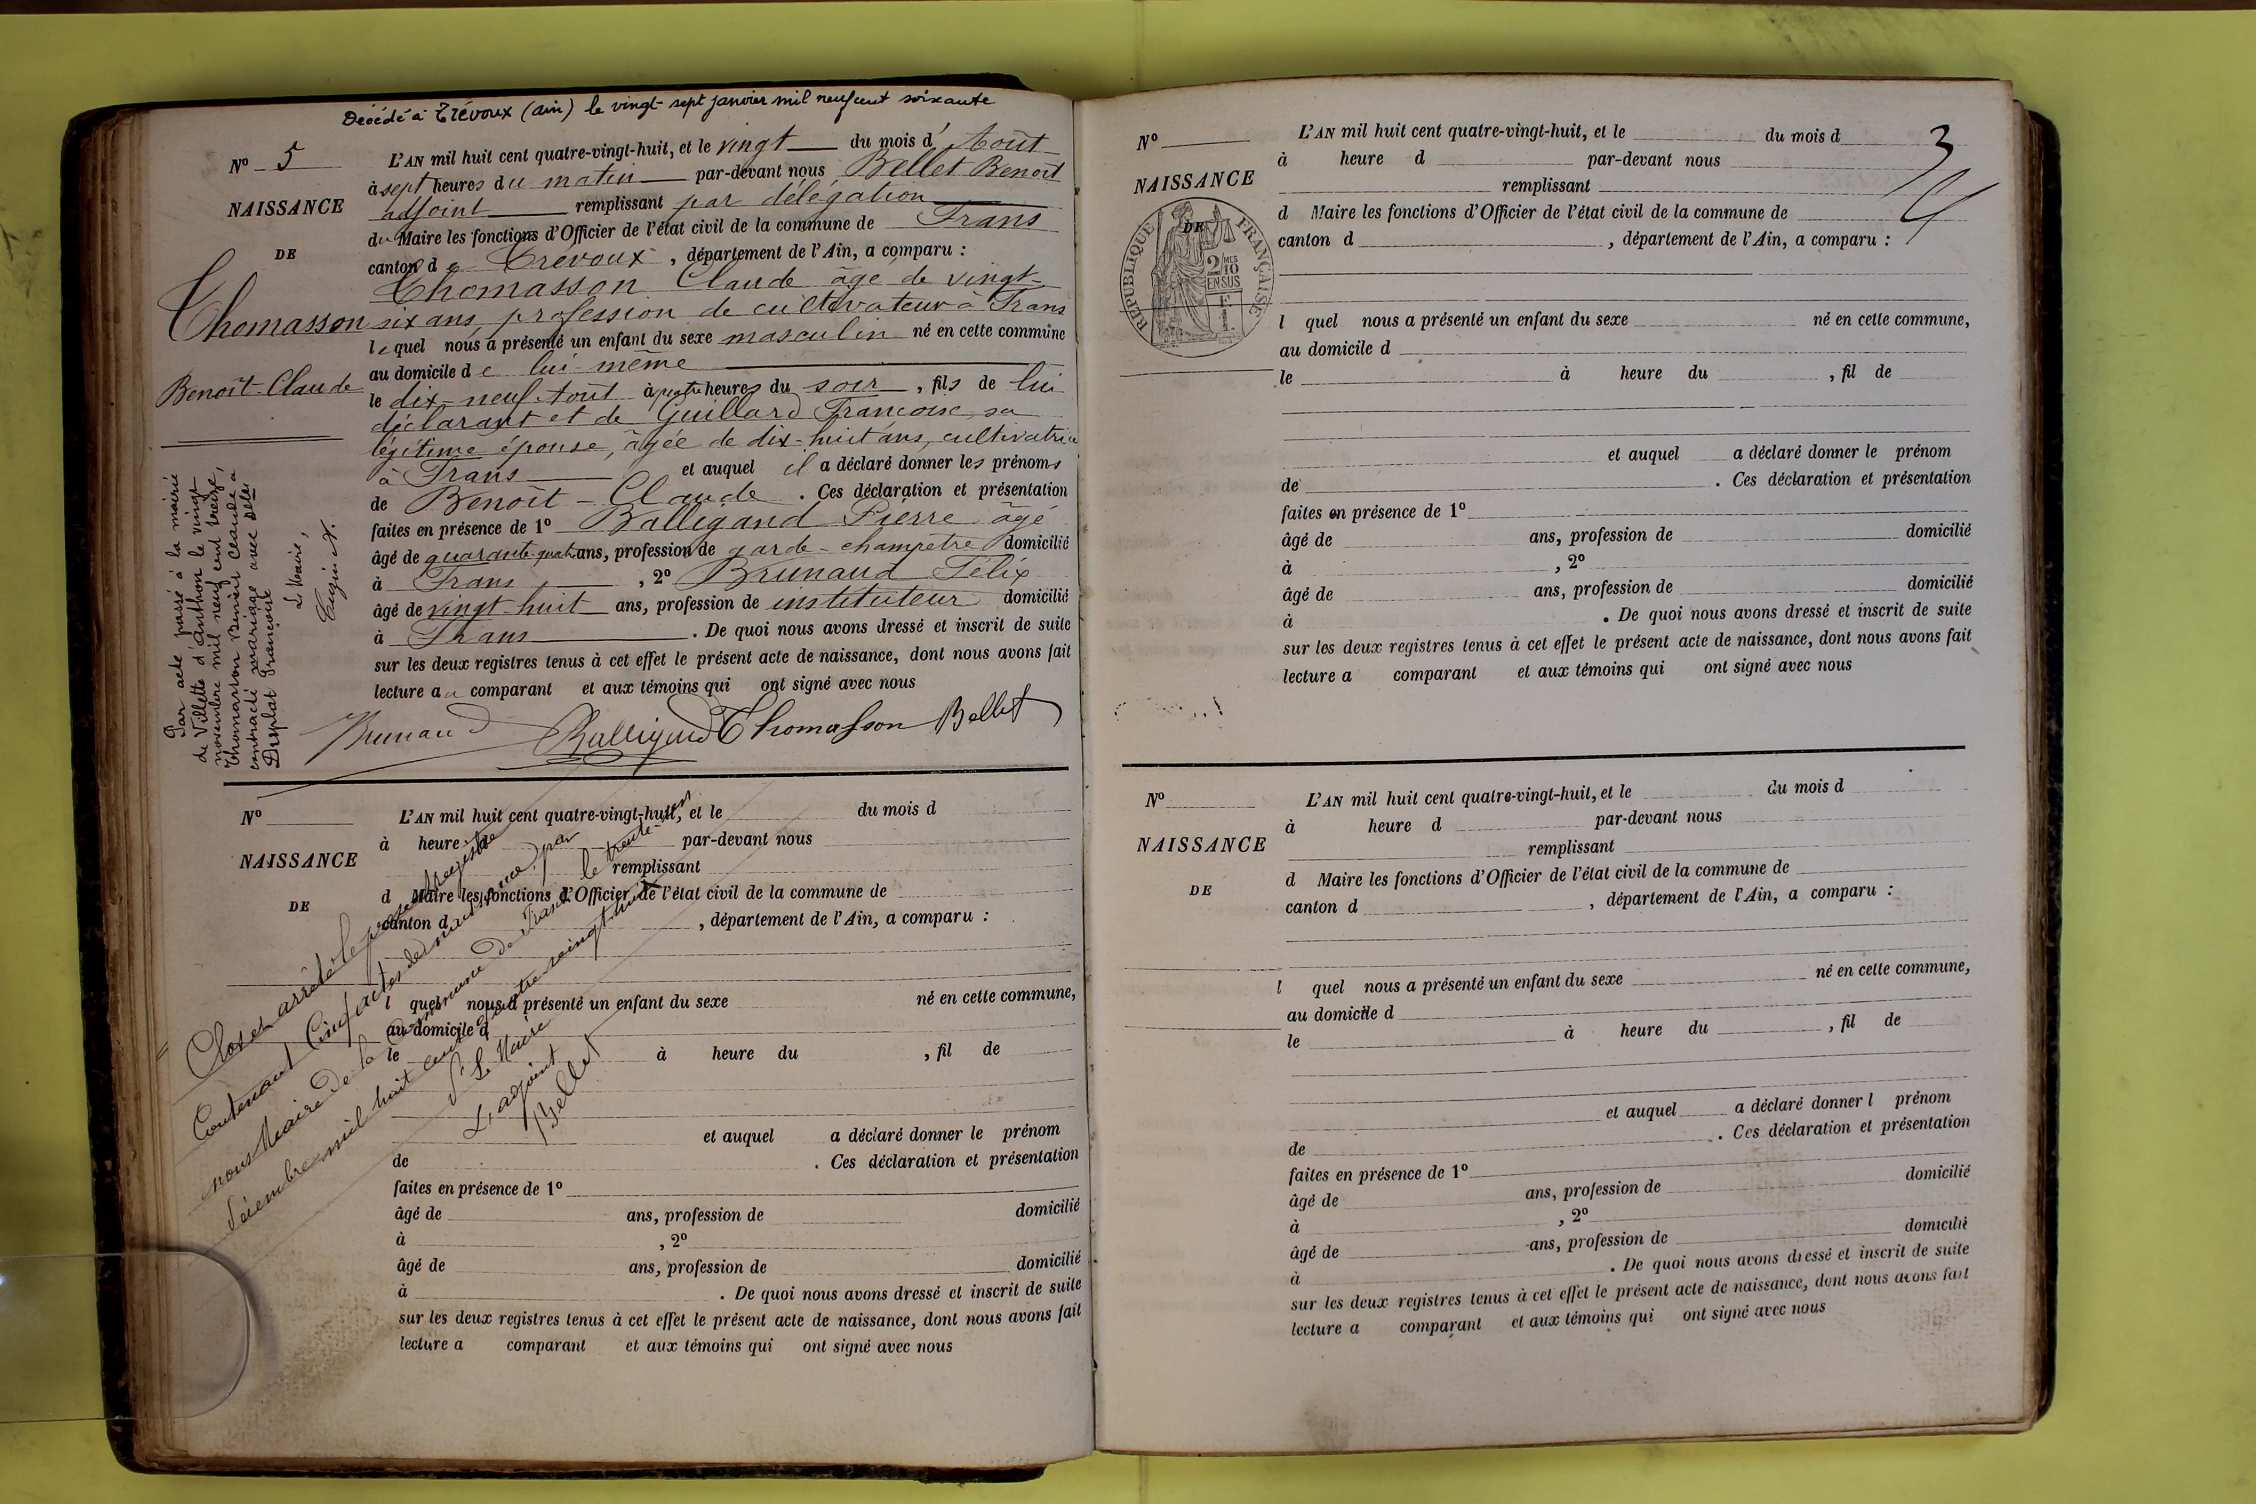 Décédé à Trévoux (ain) le vingt-sept janvier mil neuf cent soixante
N° 5
NAISSANCE
DE
Thomasson
Benoît-Claude
L'AN mil huit cent quatre-vingt-huit, et le vingt du mois d' Août
à sept heures du matin par-devant nous Bellet Benoît
adjoint remplissant par délégation
du Maire les fonctions d'Officier de l'état civil de la commune de Trans
canton de Trévoux, département de l'Ain, a comparu :
Thomasson Claude âgé de vingt-
six ans, profession de cultivateur à Trans
lequel nous a présenté un enfant du sexe masculin né en cette commune
au domicile de lui-même
le dix-neuf Août à quatre heures du soir, fils de lui
déclarant et de Guillard Françoise sa
légitime épouse, âgée de dix-huit ans, cultivatrice
à Trans et auquel il a déclaré donner les prénoms
de Benoît-Claude. Ces déclaration et présentation
faites en présence de 1° Balligand Pierre âgé
âgé de quarante-quatre ans, profession de garde-champêtre domicilié
à Trans, 2° Brunaud Félix
âgé de vingt-huit ans, profession de instituteur domicilié
à Trans. De quoi nous avons dressé et inscrit de suite
sur les deux registres tenus à cet effet le présent acte de naissance, dont nous avons fait
lecture au comparant et aux témoins qui ont signé avec nous
Brunaud Balligand Thomasson Bellet
Par acte passé à la mairie
de Villette d'Anthon le vingt-
novembre mil neuf cent treize,
Thomasson Benoît Claude a
contracté mariage avec Delle
Desplat Françoise
Le Maire,
N°
NAISSANCE
DE
L'AN mil huit cent quatre-vingt-huit, et le du mois d
à heure d par-devant nous
remplissant
d Maire les fonctions d'Officier de l'état civil de la commune de
canton d , département de l'Ain, a comparu :
l quel nous a présenté un enfant du sexe né en cette commune,
au domicile d
le à heure du , fil de
et auquel a déclaré donner le prénom
de . Ces déclaration et présentation
faites en présence de 1°
âgé de ans, profession de domicilié
à , 2°
âgé de ans, profession de domicilié
à . De quoi nous avons dressé et inscrit de suite
sur les deux registres tenus à cet effet le présent acte de naissance, dont nous avons fait
lecture a comparant et aux témoins qui ont signé avec nous
Clos et arrêté le présent registre
Contenant Cinq actes de naissance, par
nous Maire de la Commune de Trans le trente-un
décembre mil huit cent quatre-vingt-huit
Le Maire
L'adjoint
Bellet
3
N°
NAISSANCE
DE
RÉPUBLIQUE FRANÇAISE
2/10 MES
EN SUS
L'AN mil huit cent quatre-vingt-huit, et le du mois d
à heure d par-devant nous
remplissant
d Maire les fonctions d'Officier de l'état civil de la commune de
canton d , département de l'Ain, a comparu :
l quel nous a présenté un enfant du sexe né en cette commune,
au domicile d
le à heure du , fil de
et auquel a déclaré donner le prénom
de . Ces déclaration et présentation
faites en présence de 1°
âgé de ans, profession de domicilié
à , 2°
âgé de ans, profession de domicilié
à . De quoi nous avons dressé et inscrit de suite
sur les deux registres tenus à cet effet le présent acte de naissance, dont nous avons fait
lecture a comparant et aux témoins qui ont signé avec nous
N°
NAISSANCE
DE
L'AN mil huit cent quatre-vingt-huit, et le du mois d
à heure d par-devant nous
remplissant
d Maire les fonctions d'Officier de l'état civil de la commune de
canton d , département de l'Ain, a comparu :
l quel nous a présenté un enfant du sexe né en cette commune,
au domicile d
le à heure du , fil de
et auquel a déclaré donner l prénom
de . Ces déclaration et présentation
faites en présence de 1°
âgé de ans, profession de domicilié
à , 2°
âgé de ans, profession de domicilié
à . De quoi nous avons dressé et inscrit de suite
sur les deux registres tenus à cet effet le présent acte de naissance, dont nous avons fait
lecture a comparant et aux témoins qui ont signé avec nous